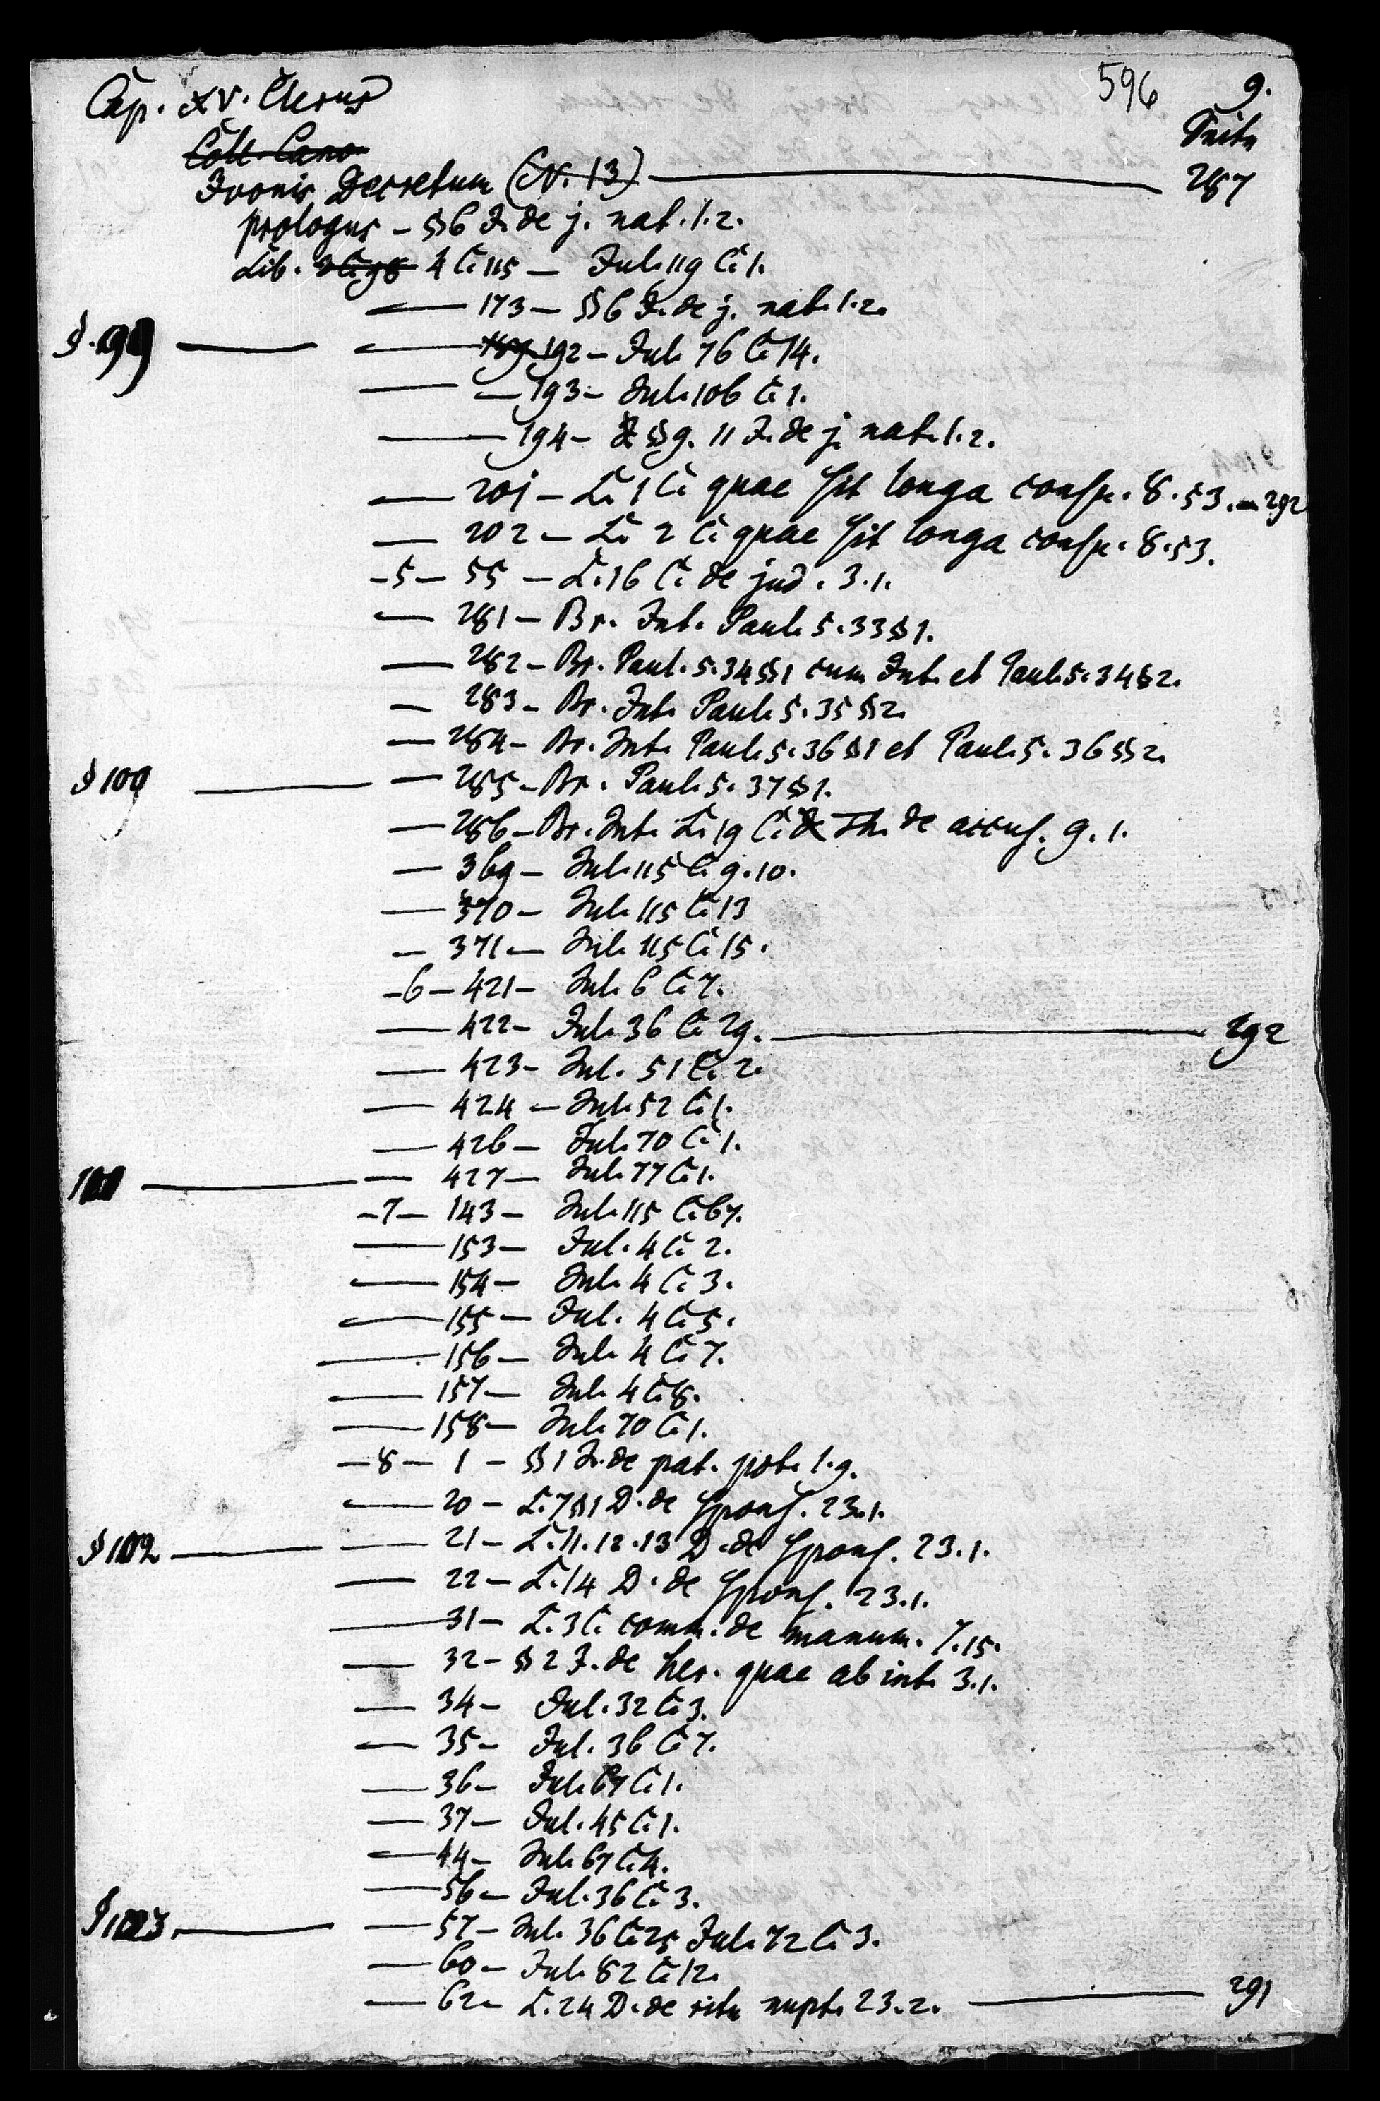 Cap. XV. Clerus
596
9.
Seite
Coll. Cano
Ivonis Decretum (N. 13) — 287
prologus – §6 J. de j. nat. 1.2.
Lib. 4 C. 115 — Jul. 119 C. 1.
— 173 — §6 J. de j. nat. 1.2.
§. 99 — — 192 – Jul. 76 C. 14.
— — 193 – Jul. 106 C. 1.
— 194 – §9. 11 J. de j. nat. 1.2.
— 201 – L. 1 C. quae sit longa consu. 8.53. — 292
— 202 – L. 2 C. quae sit longa consu. 8.53.
– 5 – 55 – L. 16 C. de jud. 3.1.
— 281 – Br. Int. Paul. 5.33 §1.
— 282 – Br. Paul. 5.34 §1 cum Int. et Paul. 5.34 §2.
— 283 – Br. Int. Paul. 5.35 §2.
— 284 – Br. Int. Paul. 5.36 §1 et Paul. 5.36 §2.
§ 100 — — 285 – Br. Paul. 5.37 §1.
— 286 – Br. Int. L. 19 C. Th. de accus. 9.1.
— 369 – Jul. 115 C. 9.10.
— 370 – Jul. 115 C. 13
— 371 — Jul. 115 C. 15.
– 6 – 421 – Jul. 6 C. 7.
— 422 – Jul. 36 C. 29. — 292
— 423 – Jul. 51 C. 2.
— 424 – Jul. 52 C. 1.
— 426 – Jul. 70 C. 1.
101 — — 427 – Jul. 77 C. 1.
– 7 – 143 – Jul. 115 C. 67.
— 153 – Jul. 4 C. 2.
— 154 – Jul. 4 C. 3.
— 155 – Jul. 4 C. 5.
— 156 – Jul. 4 C. 7.
— 157 – Jul. 4 C. 8.
— 158 – Jul. 70 C. 1.
– 8 – 1 – §1 J. de pat. pot. 1.9.
— 20 – L. 7 §1 D. de spons. 23.1.
§ 102 — — 21 – L. 11.12.13 D. de spons. 23.1.
— 22 – L. 14 D. de spons. 23.1.
— 31 – L. 3 C. comm. de manum. 7.15.
— 32 – §2 J. de her. quae ab int. 3.1.
— 34 – Jul. 32 C. 3.
— 35 – Jul. 36 C. 7.
— 36 – Jul. 67 C. 1.
— 37 – Jul. 45 C. 1.
— 44 – Jul. 67 C. 4.
— 56 – Jul. 36 C. 3.
§ 103. — — 57 – Jul. 36 C. 25 Jul. 72 C. 3.
— 60 – Jul. 82 C. 12.
— 62 – L. 24 D. de ritu nupt. 23.2. — 291